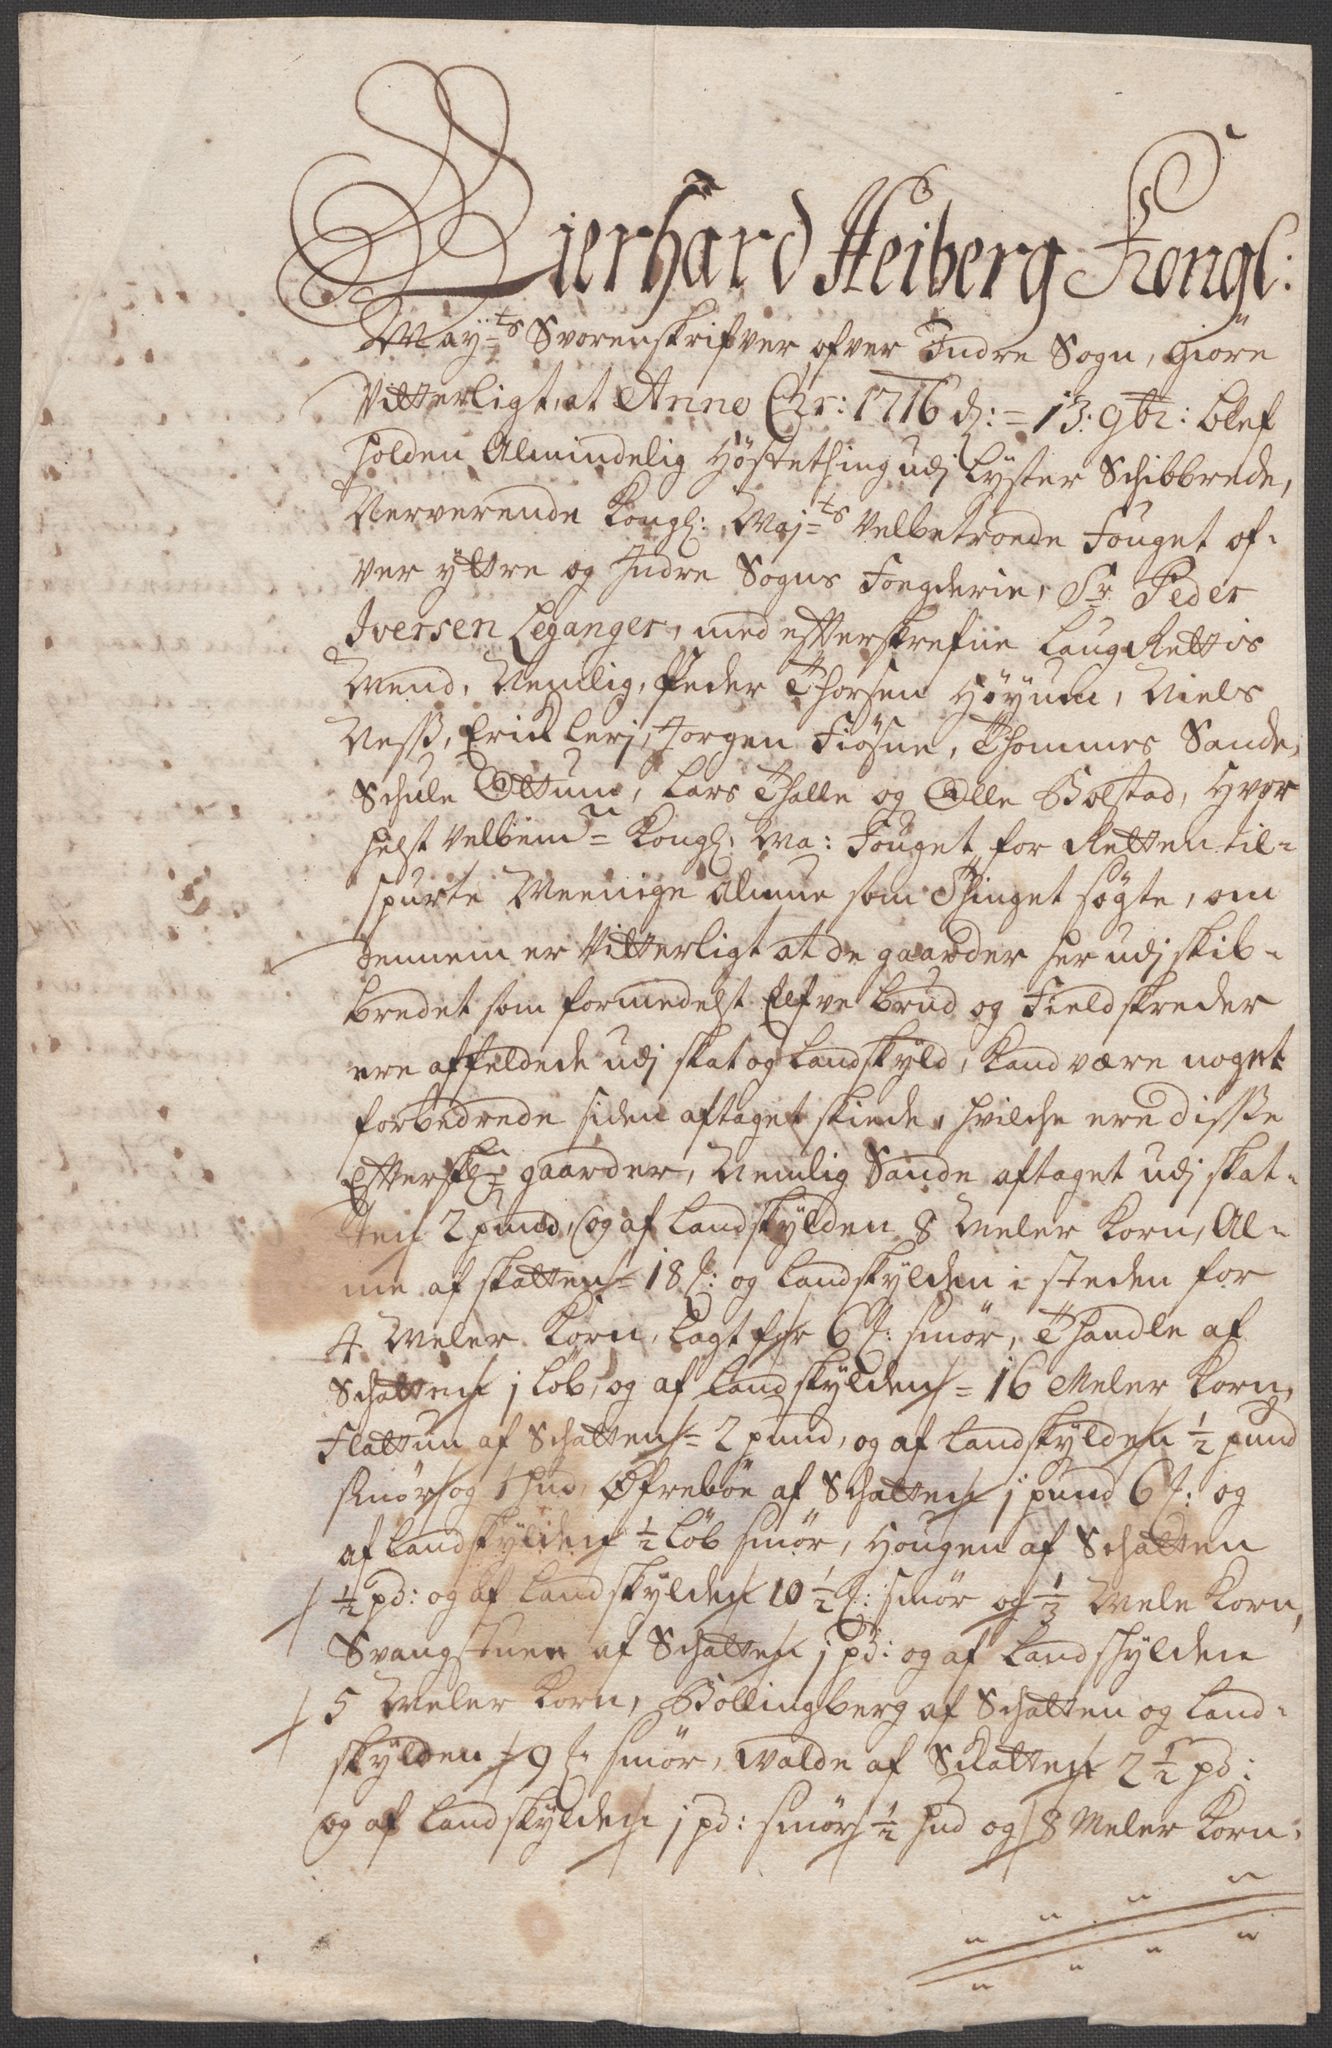 Gierhard Heiberg Kongl:
May:ts Svorenskrifver, ofver Indre Sogn, giöre
Vitterligt, at Anno Chr: 1716 d: = 13: 9br: blef
holden Almindelig Höstething udj Lyster Schibbrede,
Nerverende Kongl: Maj:ts Velbetroede Fouget of-
ver yttre og Indre Sogns Fogderie, Sr Peder
Iversen Leganger, med efterskrefne Laug Rettis
Mend, Nemlig, Peder Thorsen Höyum, Niels
Ness, Erich Lerj, Jorgen Fiösne, Thommes Sande,
Schule Ottum, Lars Thalle og Olle Bolstad, Hvor
helst velbem:te Kongl: Ma: Fouget for Retten til-
spurte Meenige Almue som Thinget sögte, om
dennem er Vitterligt at de gaarder her udj skib-
bredet som formedelst Elfve brud og Fieldskreder
ere affeldede udj skat og Landskyld, Kand være noget
forbedrede siden aftaget skiede, hvilche ere disse
Efterskr: gaarder, Nemlig Sande aftaget udj skat-
ten 2 pund, og af Landskylden 8 Meler Korn, Al-
me af skatten = 18 s: og Landskylden i steden for
4 Meler Korn, lagt for 6 s: smör, Thandle af
Schatten j löb, og af Landskylden = 16 Meler Korn,
Flattun af Schatten = 2 pund, og af Landskylden 1/2 pund
smör og 1 hud, Øfreböe af Schatten j pund 6 s: og
af Landskylden 1/2 löb smör, Hougen af Schatten
1/2 pd: og af Landskylden 10 1/2 s: smör og 1/3 Mele Korn,
Svangstuen af Schatten j pd: og af Landskylden
5 Meler Korn, Bollingberg af Schatten og Land-
skylden 9 s: smör, Walde af Schatten 2 1/2 pd:
og af Landskylden j pd: smör 1/2 hud og 8 Meler Korn.